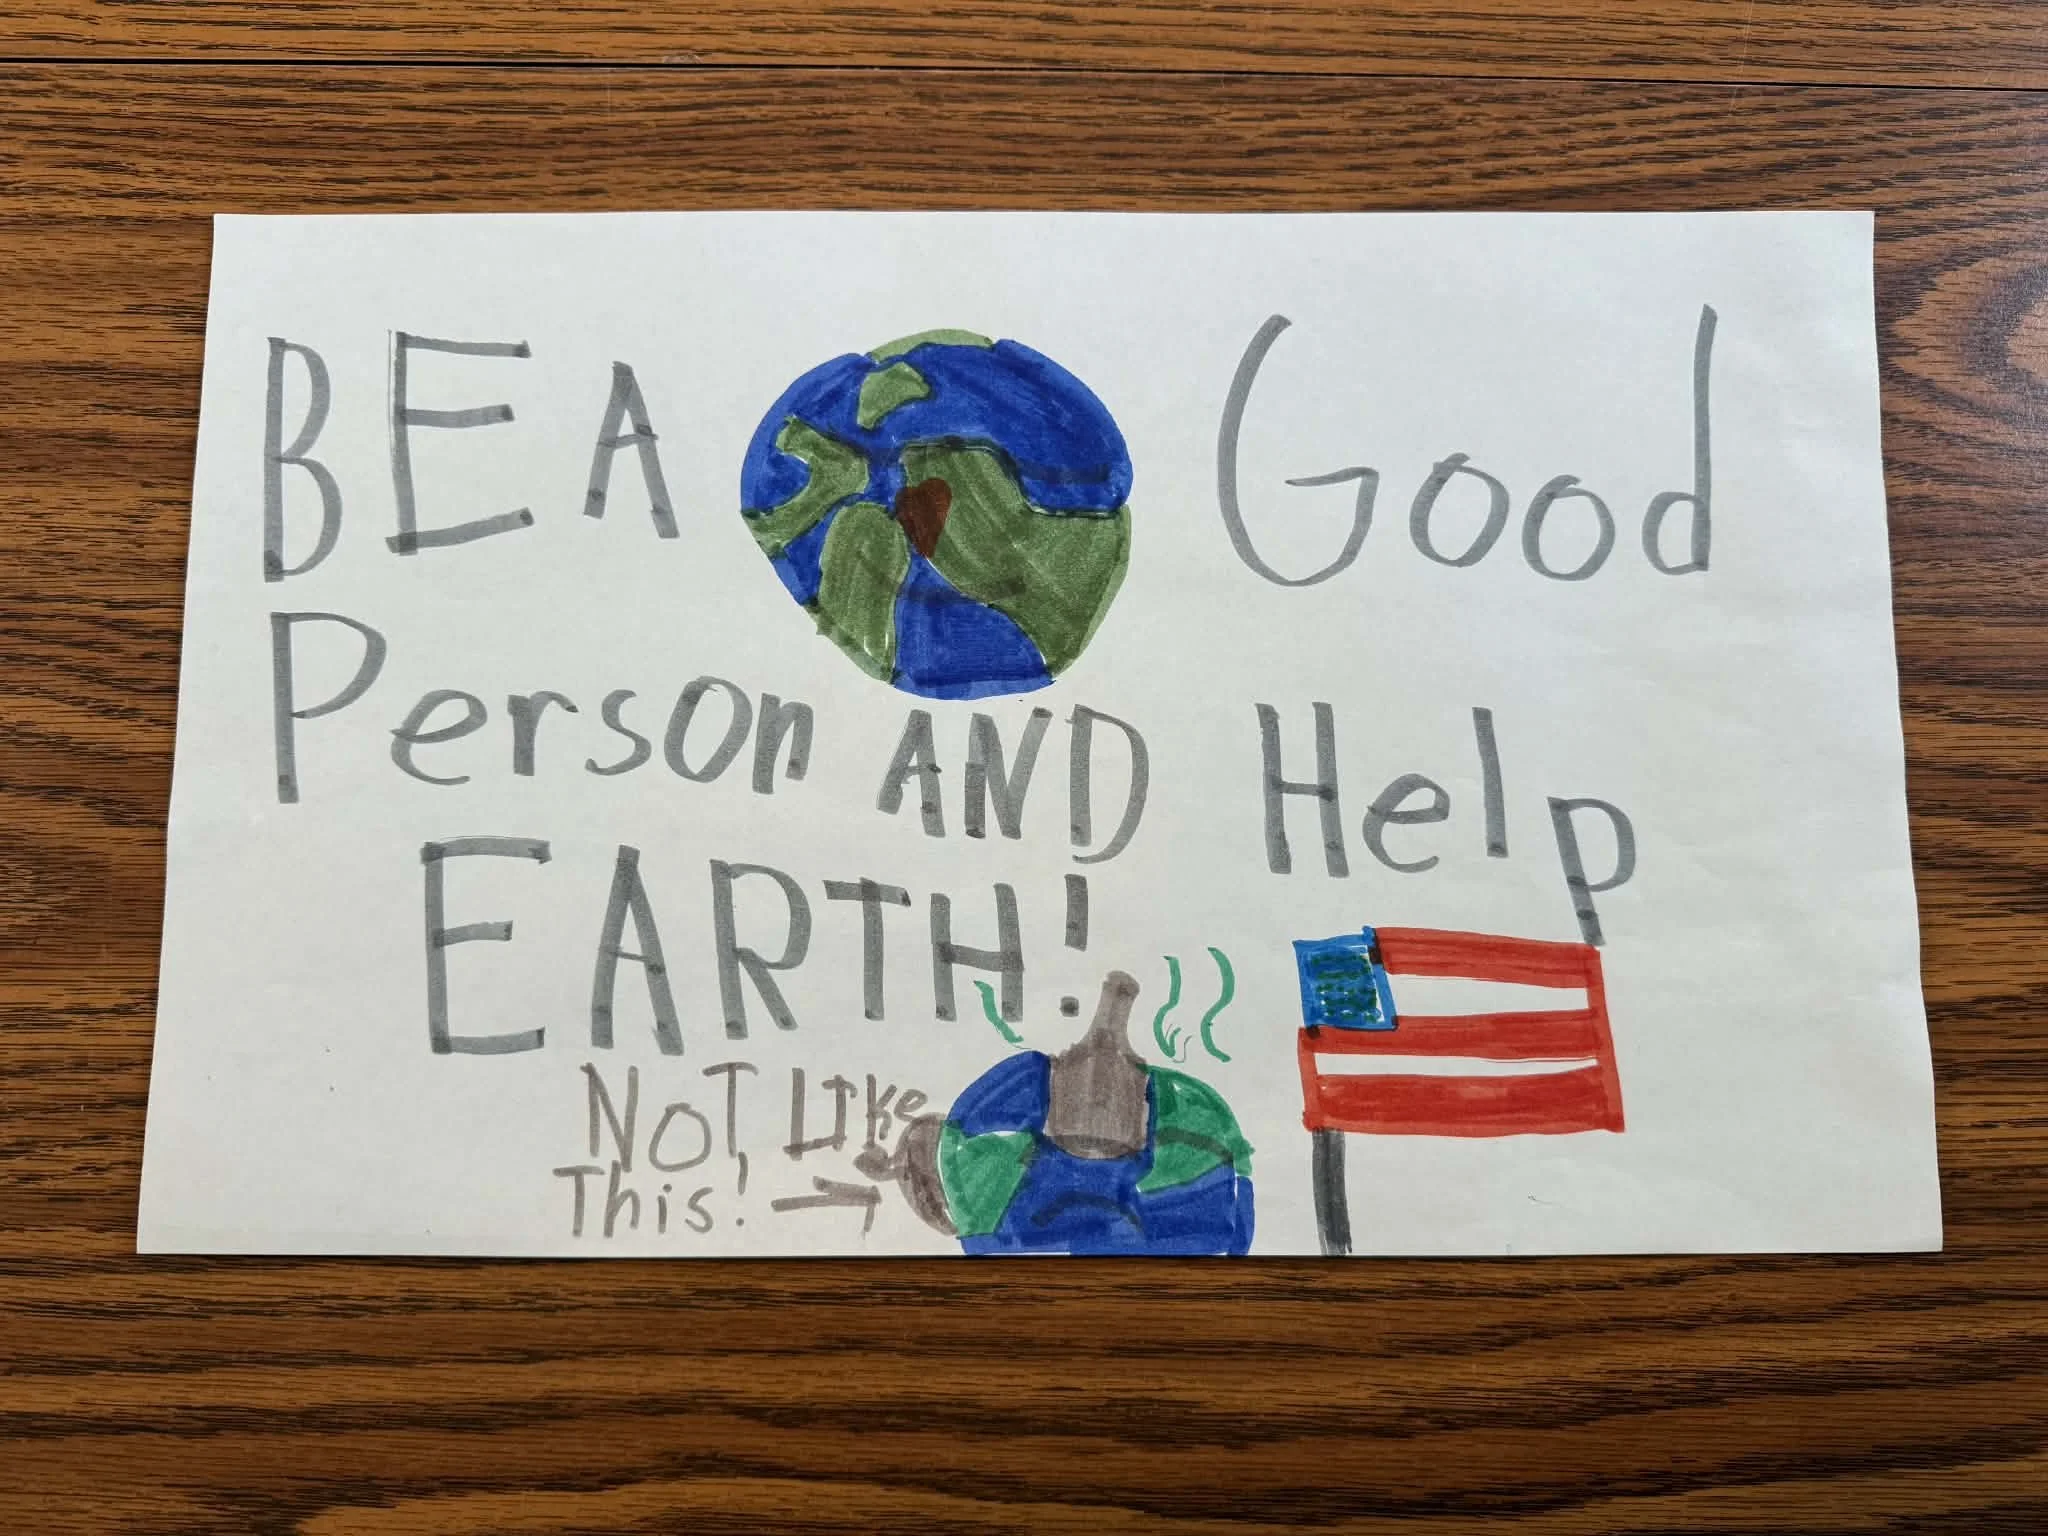 BE A Good
Person AND Help
EARTH!
NOT LIke
This!